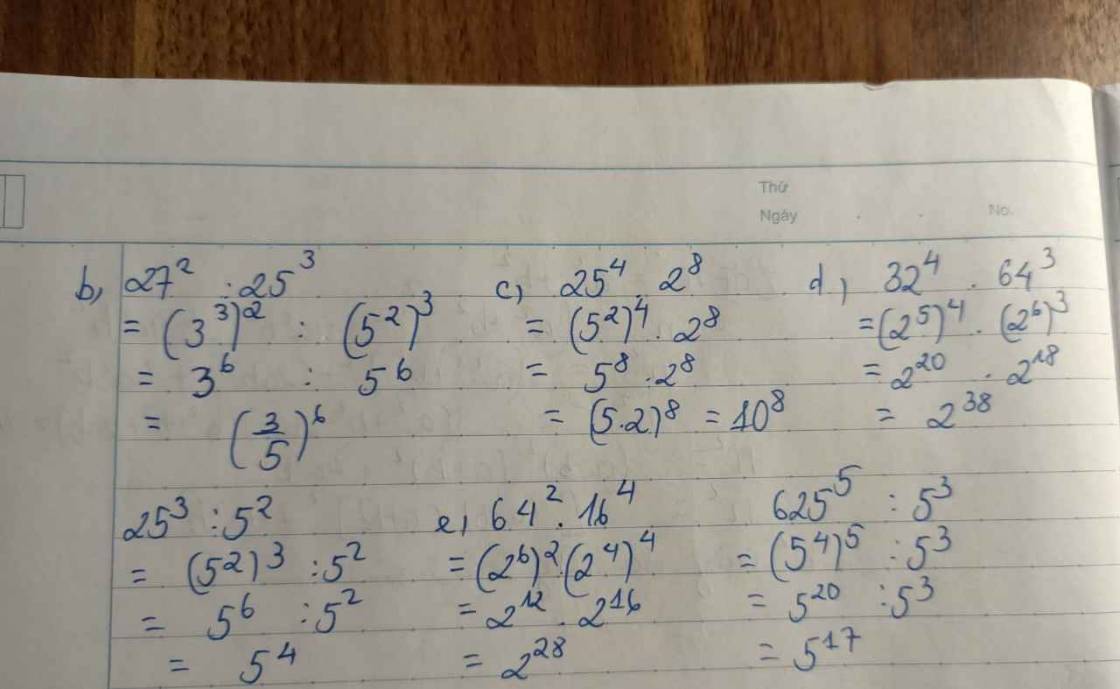 Thứ
Ngày No.
b, 27² : 25³
= (3³)² : (5²)³
= 3⁶ : 5⁶
= (3/5)⁶
c) 25⁴ 2⁸
= (5²)⁴ . 2⁸
= 5⁸ . 2⁸
= (5.2)⁸ = 10⁸
d) 32⁴ . 64³
= (2⁵)⁴ . (2⁶)³
= 2²⁰ . 2¹⁸
= 2³⁸
25³ : 5²
= (5²)³ : 5²
= 5⁶ : 5²
= 5⁴
e, 64² . 16⁴
= (2⁶)² (2⁴)⁴
= 2¹² . 2¹⁶
= 2²⁸
625⁵ : 5³
= (5⁴)⁵ : 5³
= 5²⁰ : 5³
= 5¹⁷